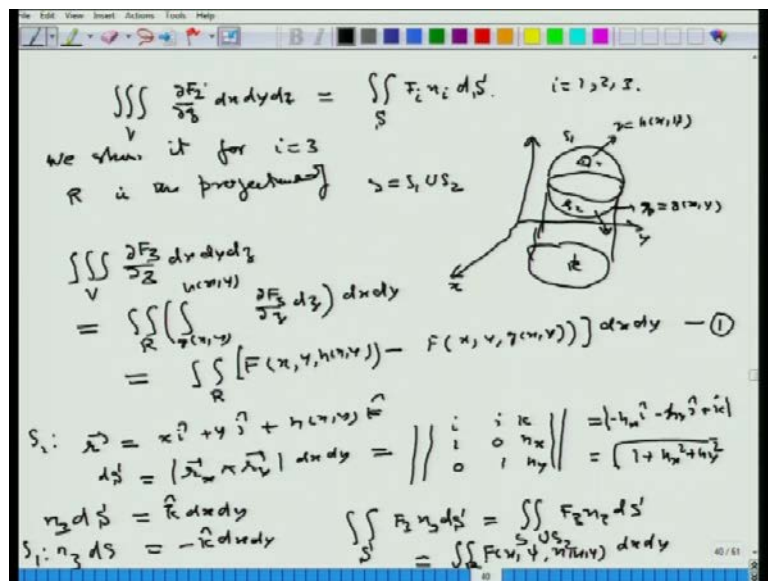 File Edit View Insert Actions Tools Help
∭_V ∂F_2/∂z dx dy dz = ∬_S F_i n_i dS. i = 1, 2, 3.
We show it for i = 3
R is the projection of S = S_1 ∪ S_2
S_1 z = h(x, y)
S_2 z = g(x, y)
R
x y
∭_V ∂F_3/∂z dx dy dz
= ∬_R ( ∫_{g(x,y)}^{h(x,y)} ∂F_3/∂z dz ) dx dy
= ∬_R [F(x, y, h(x, y)) - F(x, y, g(x, y))] dx dy — ①
S_1: r⃗ = x î + y ĵ + h(x, y) k̂
dS = |r⃗_x × r⃗_y| dx dy = || i j k ; 1 0 h_x ; 0 1 h_y || = |-h_x î - h_y ĵ + k̂|
= √(1 + h_x² + h_y²)
n_3 dS = k̂ dx dy
S_1: n_3 ds = -k̂ dx dy
∬_S F_3 n_3 dS = ∬_{S_1 ∪ S_2} F_3 n_3 dS
= ∬_R F(x, y, h(x, y)) dx dy
40 / 61
40